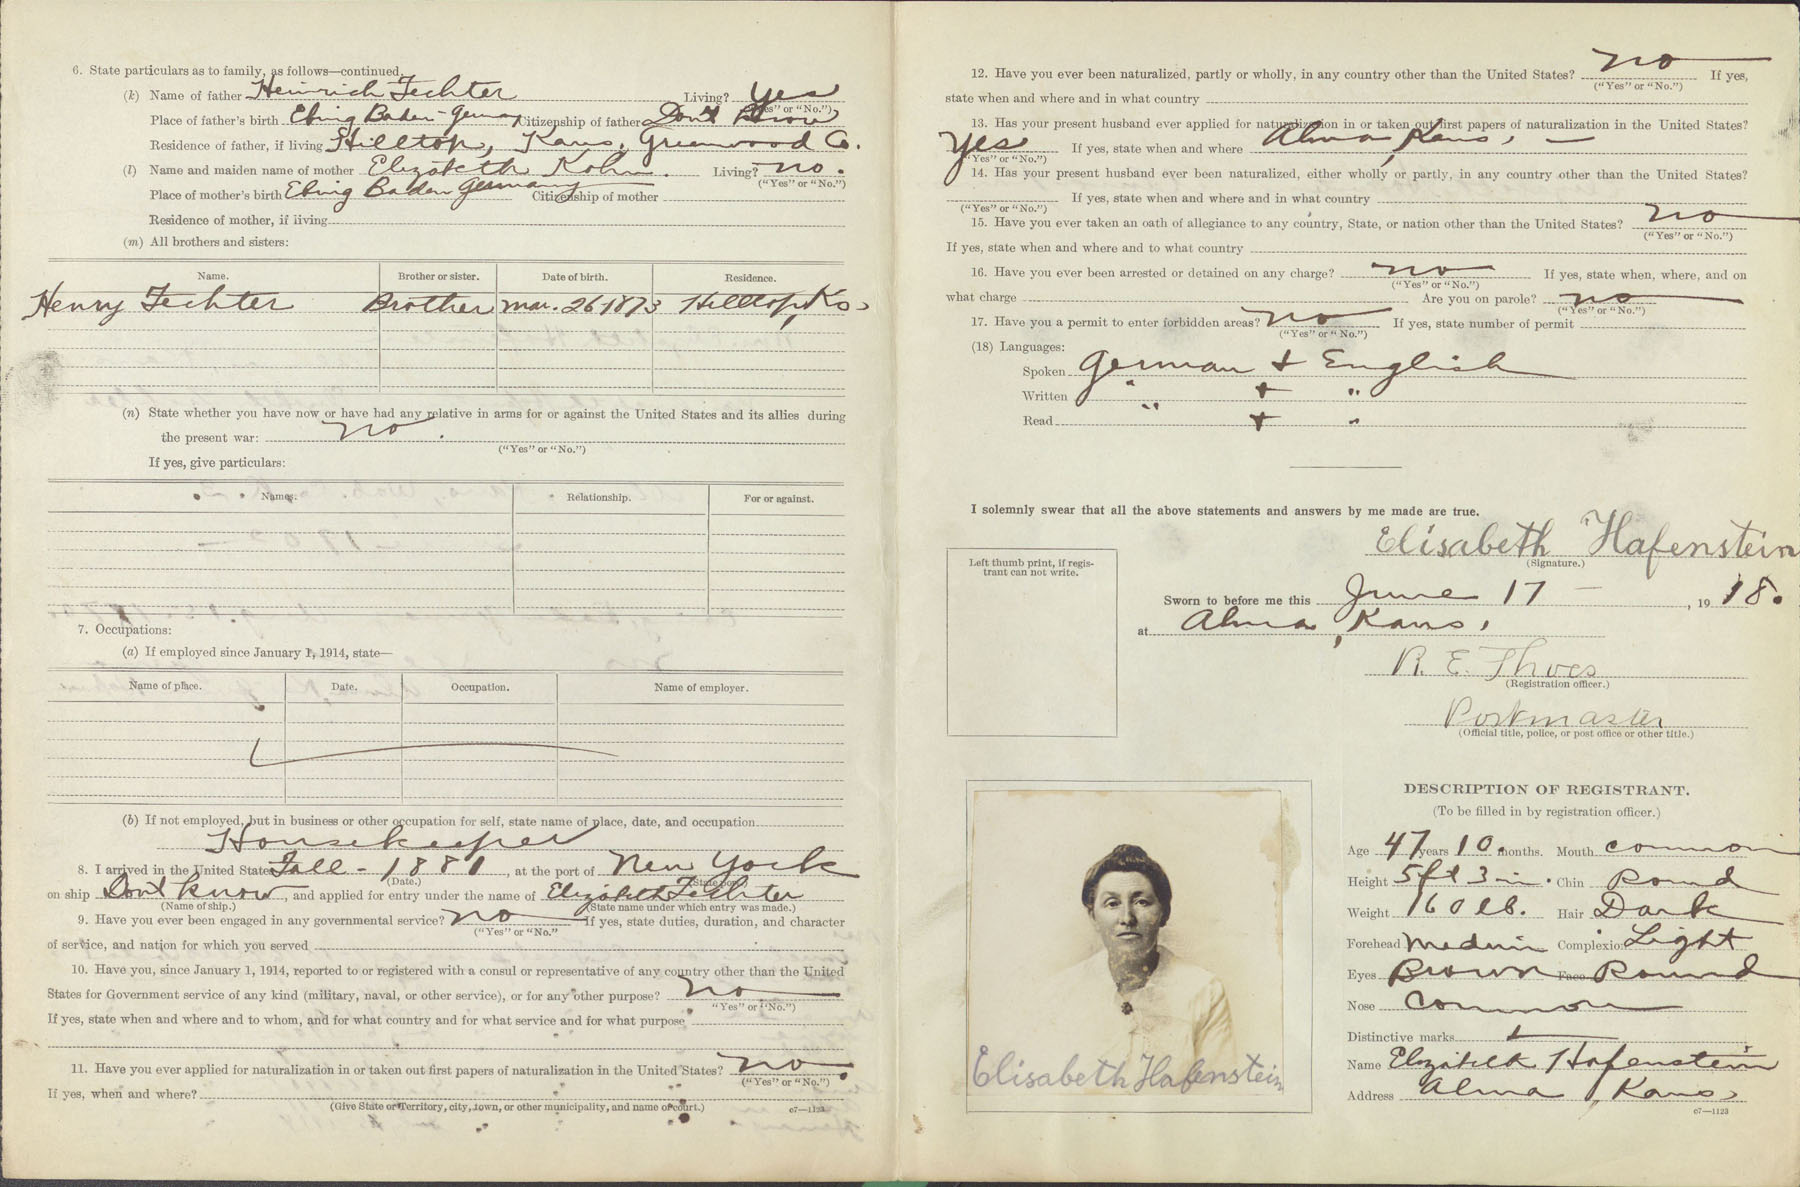 6. State particulars as to family, as follows—continued.
(k) Name of father Heinrich Fechter Living? Yes
("Yes" or "No.")
Place of father's birth Ebing Baden - Germany Citizenship of father Don't Know
Residence of father, if living Hilltop, Kans, Greenwood Co.
(l) Name and maiden name of mother Elizabeth Kohn. Living? no.
("Yes" or "No.")
Place of mother's birth Ebing Baden Germany Citizenship of mother
Residence of mother, if living
(m) All brothers and sisters:
Name. Brother or sister. Date of birth. Residence.
Henry Fechter Brother Mar. 26 1873 Hilltop, Ks
(n) State whether you have now or have had any relative in arms for or against the United States and its allies during
the present war: no.
("Yes" or "No.")
If yes, give particulars:
Names. Relationship. For or against.
7. Occupations:
(a) If employed since January 1, 1914, state—
Name of place. Date. Occupation. Name of employer.
(b) If not employed, but in business or other occupation for self, state name of place, date, and occupation
Housekeeper
8. I arrived in the United States Fall - 1881, at the port of New York
(Date.) (State port.)
on ship Dont know, and applied for entry under the name of Elizabeth Fechter
(Name of ship.) (State name under which entry was made.)
9. Have you ever been engaged in any governmental service? no If yes, state duties, duration, and character
("Yes" or "No."
of service, and nation for which you served
10. Have you, since January 1, 1914, reported to or registered with a consul or representative of any country other than the United
States for Government service of any kind (military, naval, or other service), or for any other purpose? no
("Yes" or "No.")
If yes, state when and where and to whom, and for what country and for what service and for what purpose
11. Have you ever applied for naturalization in or taken out first papers of naturalization in the United States? no.
("Yes" or "No.")
If yes, when and where?
(Give State or Territory, city, town, or other municipality, and name of court.)
c7—1123
12. Have you ever been naturalized, partly or wholly, in any country other than the United States? no If yes,
("Yes" or "No.")
state when and where and in what country
13. Has your present husband ever applied for naturalization in or taken out first papers of naturalization in the United States?
Yes If yes, state when and where Alma, Kans, —
("Yes" or "No.")
14. Has your present husband ever been naturalized, either wholly or partly, in any country other than the United States?
If yes, state when and where and in what country
("Yes" or "No.")
15. Have you ever taken an oath of allegiance to any country, State, or nation other than the United States? no
("Yes" or "No.")
If yes, state when and where and to what country
16. Have you ever been arrested or detained on any charge? no If yes, state when, where, and on
("Yes" or "No.")
what charge Are you on parole? no
("Yes" or "No.")
17. Have you a permit to enter forbidden areas? no If yes, state number of permit
("Yes" or "No.")
(18) Languages:
Spoken German + English
Written " + "
Read " + "
I solemnly swear that all the above statements and answers by me made are true.
Elisabeth Hafenstein
(Signature.)
Left thumb print, if regis-
trant can not write.
Sworn to before me this June 17 —, 19 18.
at Alma, Kans,
R. E. Thoes
(Registration officer.)
Postmaster
(Official title, police, or post office or other title.)
Elisabeth Hafenstein
DESCRIPTION OF REGISTRANT.
(To be filled in by registration officer.)
Age 47 years 10 months. Mouth common
Height 5 ft 3 in. Chin Round
Weight 160 lb. Hair Dark
Forehead Medium Complexion Light
Eyes Brown Face Round
Nose Common
Distinctive marks
Name Elizabeth Hafenstein
Address Alma, Kans
c7—1123